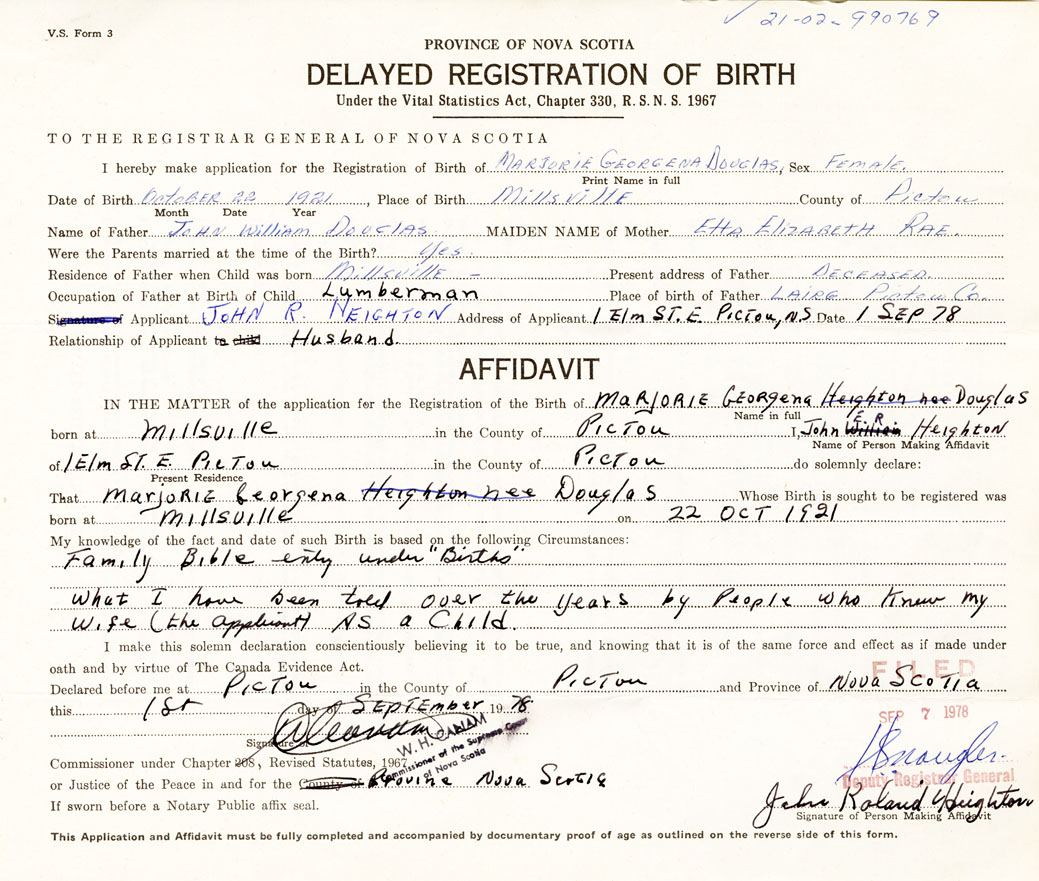 ✓ 21-02-990769
V.S. Form 3
PROVINCE OF NOVA SCOTIA
DELAYED REGISTRATION OF BIRTH
Under the Vital Statistics Act, Chapter 330, R.S.N.S. 1967
TO THE REGISTRAR GENERAL OF NOVA SCOTIA
I hereby make application for the Registration of Birth of MARJORIE GEORGENA DOUGLAS, Sex Female.
Print Name in full
Date of Birth OCTOBER 22 1921, Place of Birth Millsville County of Pictou
Month Date Year
Name of Father JOHN William DOUGLAS MAIDEN NAME of Mother Etta ELIZABETH RAE.
Were the Parents married at the time of the Birth? Yes.
Residence of Father when Child was born Millsville - Present address of Father DECEASED.
Occupation of Father at Birth of Child Lumberman Place of birth of Father LAIRG Pictou Co.
Signature of Applicant JOHN R. HEIGHTON Address of Applicant 1 Elm ST. E. PICTOU, N.S Date 1 SEP 78
Relationship of Applicant to child Husband.
AFFIDAVIT
IN THE MATTER of the application for the Registration of the Birth of MARJORIE GEORGENA Heighton nee Douglas
Name in full
born at Millsville in the County of PICTOU I, John William E.R. Heighton
Name of Person Making Affidavit
of 1 Elm ST. E. PICTOU in the County of PICTOU do solemnly declare:
Present Residence
That MARJORIE Georgena Heighton nee Douglas Whose Birth is sought to be registered was
born at Millsville on 22 OCT 1921
My knowledge of the fact and date of such Birth is based on the following Circumstances:
Family Bible enty under "Births"
What I have been told over the years by People who Knew my
Wife (the applicant) AS a Child.
I make this solemn declaration conscientiously believing it to be true, and knowing that it is of the same force and effect as if made under
oath and by virtue of The Canada Evidence Act.
FILED
Declared before me at PICTOU in the County of PICTOU and Province of NOVA SCOTIA
this 1st day of SEPTEMBER 1978.
SEP 7 1978
Signature of
W. H. CANAM
Commissioner of the Supreme Court
of Nova Scotia
Commissioner under Chapter 208, Revised Statutes, 1967,
Deputy Registrar General
or Justice of the Peace in and for the County of Provine Nova Scotia
John Roland Heighton
If sworn before a Notary Public affix seal.
Signature of Person Making Affidavit
This Application and Affidavit must be fully completed and accompanied by documentary proof of age as outlined on the reverse side of this form.